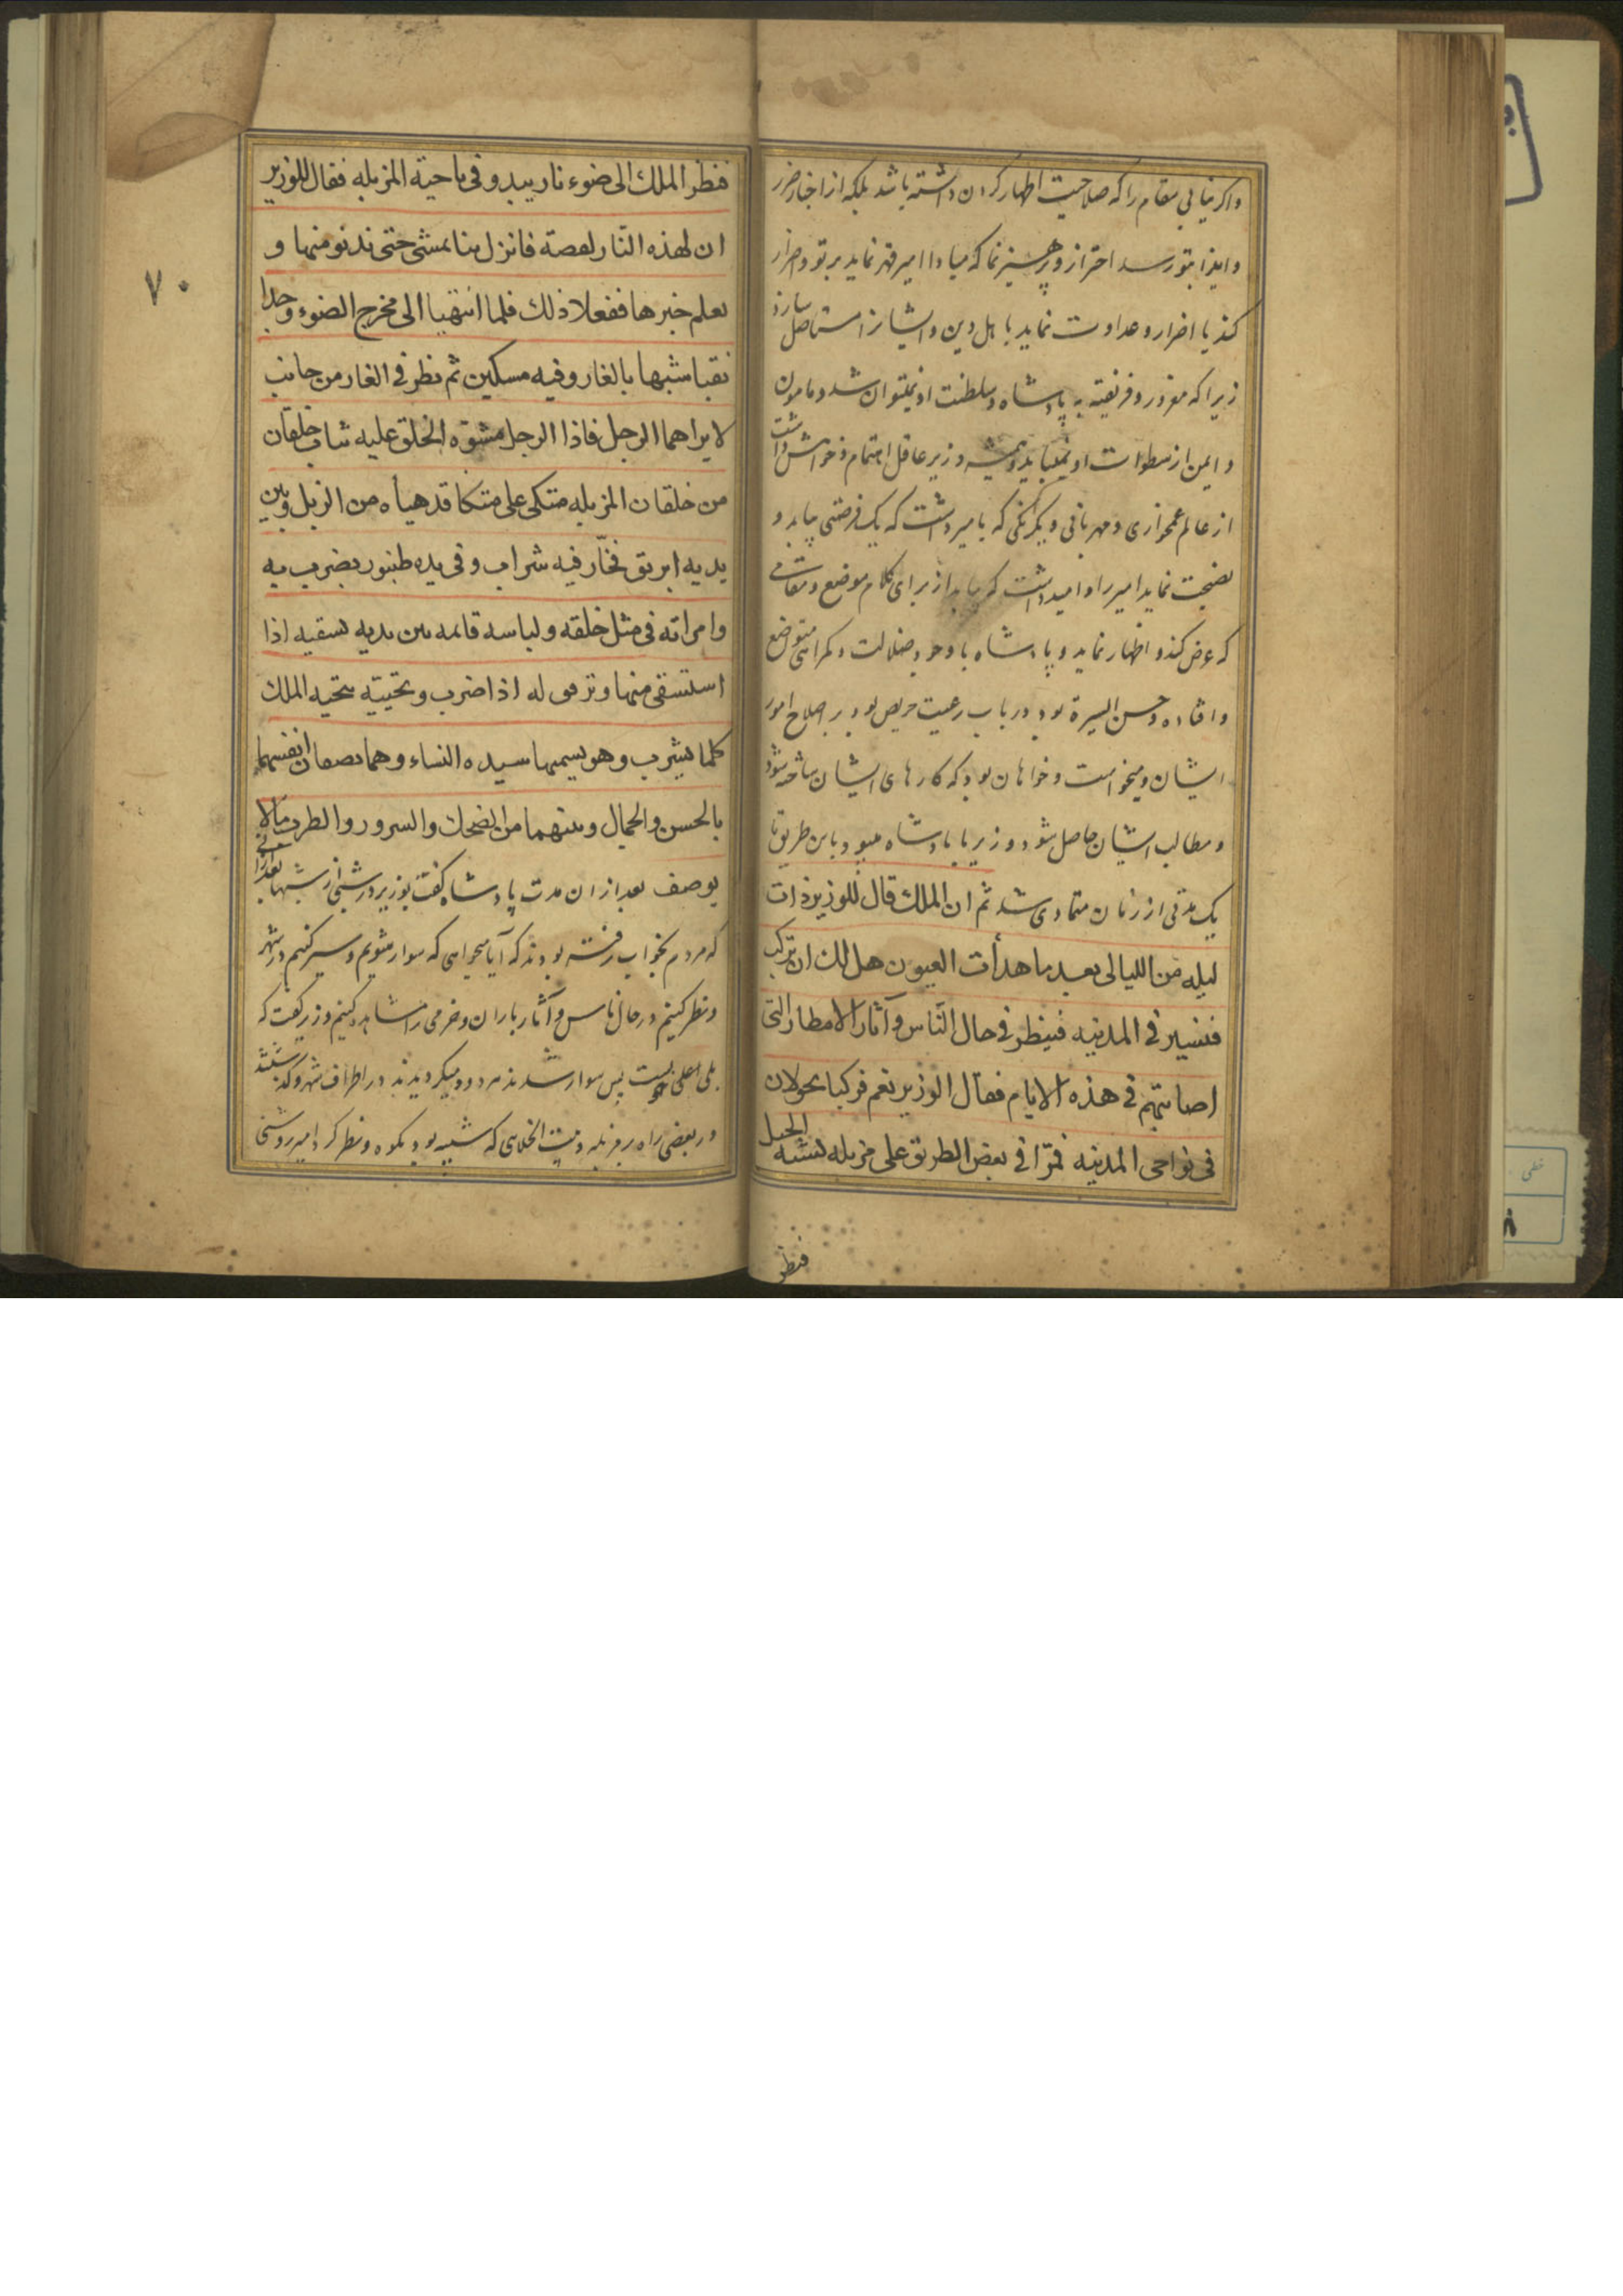 واکر نیابی مقام را که صلاحیت اظهار کردن داشته باشد بلکه از اخبار ضرر
و ایذا بتو رسد احتراز و پرهیز نما که مبادا امیر قهر نماید بر تو و اضرار
کند یا اضرار و عداوت نماید با اهل دین و ایشانرا مستاصل سازد
زیرا که مغرور و فریفته به پادشاه و سلطنت او نمیتوان شد و مامون
و ایمن از سطوات او نمیباید و همیشه وزیر عاقل اهتمام و خواهش داشت
از عالم غمخواری و مهربانی و یکرنکی که بامیر داشت که یک فرصتی بیابد و
نصیحت نماید امیر را و امید داشت که بیابد از برای کلام موضع و مقامی
که عرض کند و اظهار نماید و پادشاه با وجود ضلالت و کمراهی متوضع
و افتاده و حسن السیرة بود در باب رعیت حریص بود بر اصلاح امور
ایشان و میخواست و خواهان بود که کارهای ایشان ساخته شود
و مطالب ایشان حاصل شود و وزیر با پادشاه میبود باین طریق تا
یک مدتی از زمان متمادی شد ثم ان الملك قال للوزیر ذات
لیله من اللیالی بعد ما هدأت العیون هل لك ان ترکب
فنسیر فی المدینه فینظر فی حال النّاس و آثار الامطار التی
اصابتهم فی هذه الایام فقال الوزیر نعم فرکبا یحولان
فی نواحی المدینه فمرّا فی بعض الطریق علی مزبله تشبه الجبل
فنظر
۷۰
فنظر الملك الی ضوء نار یبدو فی ناحیة المزبله فقال للوزیر
ان لهذه النّار لقصة فانزل بنا نمشی حتی ندنو منها و
نعلم خبرها ففعلا ذلك فلما انتهیا الی مخرج الضوء وجدا
نقبا شبیها بالغار و فیه مسکین ثم نظر فی الغار من جانب
لا یراهما الرجل فاذا الرجل مشوّه الخلق علیه ثیاب خلقان
من خلقان المزبله متکی علی متکا قد هیأه من الزبل و بین
یدیه ابریق فخّار فیه شراب و فی یده طنبور یضرب به
و امراته فی مثل خلقه و لباسه قائمه بین یدیه تسقیه اذا
استسقی منها و ترقص له اذا ضرب و تحیّیه بتحیه الملك
کلما یشرب و هو یسمیها سیده النساء و هما یصفان انفسهما
بالحسن و الجمال و بینهما من الضحك و السرور و الطرب ما لا
یوصف بعد از ان مدت پادشاه کفت بوزیر در شبی از شبها بعد از
که مردم بخواب رفته بودند که آیا میخواهی که سوار شویم و سیر کنیم در شهر
و نظر کنیم در حال ناس و آثار باران و خرمی را مشاهده کنیم وزیر کفت که
بلی اعلی پس سوار شدند هر دو و میکردیدند در اطراف شهر و کذشتند
در بعضی راه بر مزبله و بیت الخلایی که شبیه بود بکوه و نظر کرد امیر روشنی